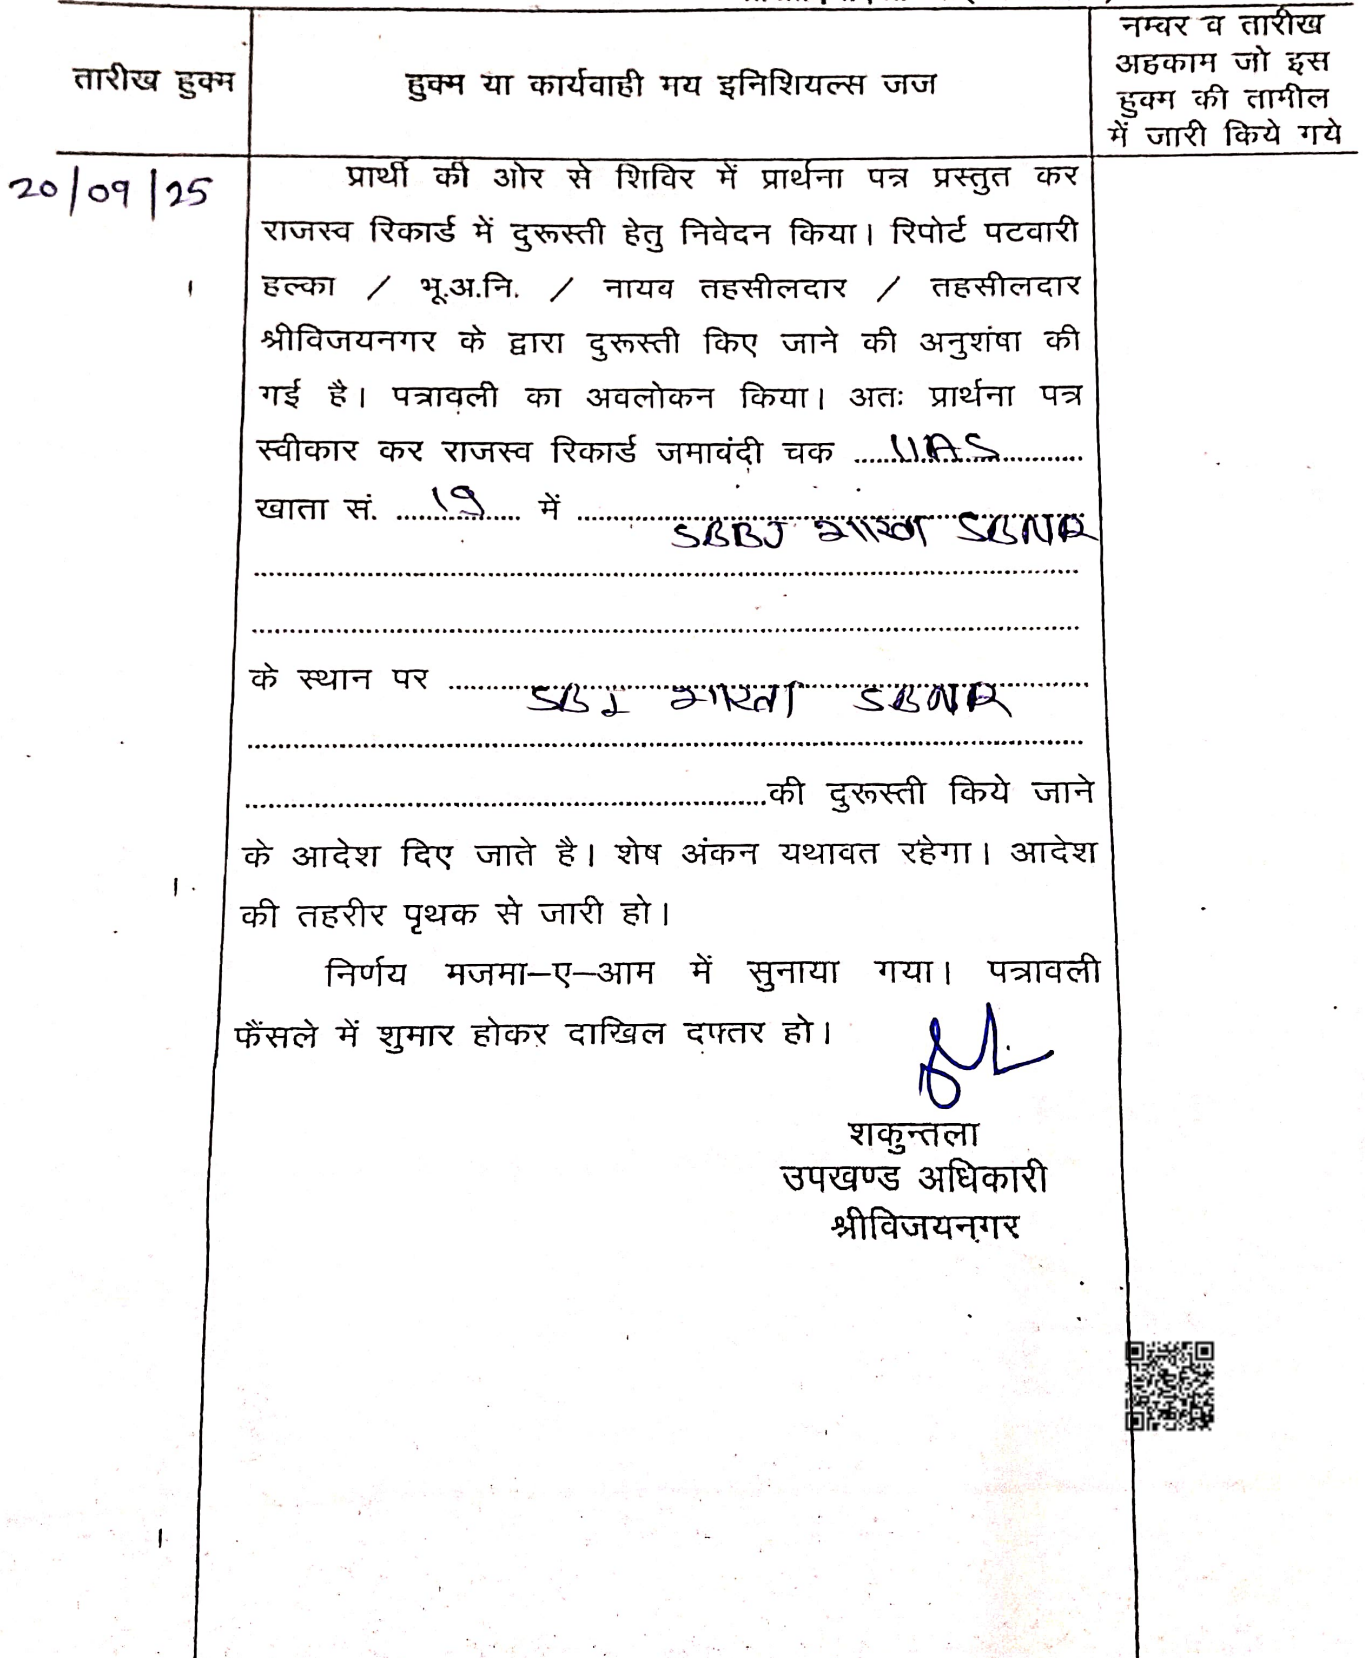 तारीख हुक्म
हुक्म या कार्यवाही मय इनिशियल्स जज
नम्बर व तारीख
अहकाम जो इस
हुक्म की तामील
में जारी किये गये
20/09/25
प्रार्थी की ओर से शिविर में प्रार्थना पत्र प्रस्तुत कर
राजस्व रिकार्ड में दुरूस्ती हेतु निवेदन किया। रिपोर्ट पटवारी
हल्का / भू.अ.नि. / नायब तहसीलदार / तहसीलदार
श्रीविजयनगर के द्वारा दुरूस्ती किए जाने की अनुशंषा की
गई है। पत्रावली का अवलोकन किया। अतः प्रार्थना पत्र
स्वीकार कर राजस्व रिकार्ड जमाबंदी चक
खाता सं. 19 में
SBBJ शाखा SBNR
के स्थान पर
SBI शाखा SBNR
की दुरूस्ती किये जाने
के आदेश दिए जाते है। शेष अंकन यथावत रहेगा। आदेश
की तहरीर पृथक से जारी हो।
निर्णय मजमा–ए–आम में सुनाया गया। पत्रावली
फैंसले में शुमार होकर दाखिल दफ्तर हो।
शकुन्तला
उपखण्ड अधिकारी
श्रीविजयनगर